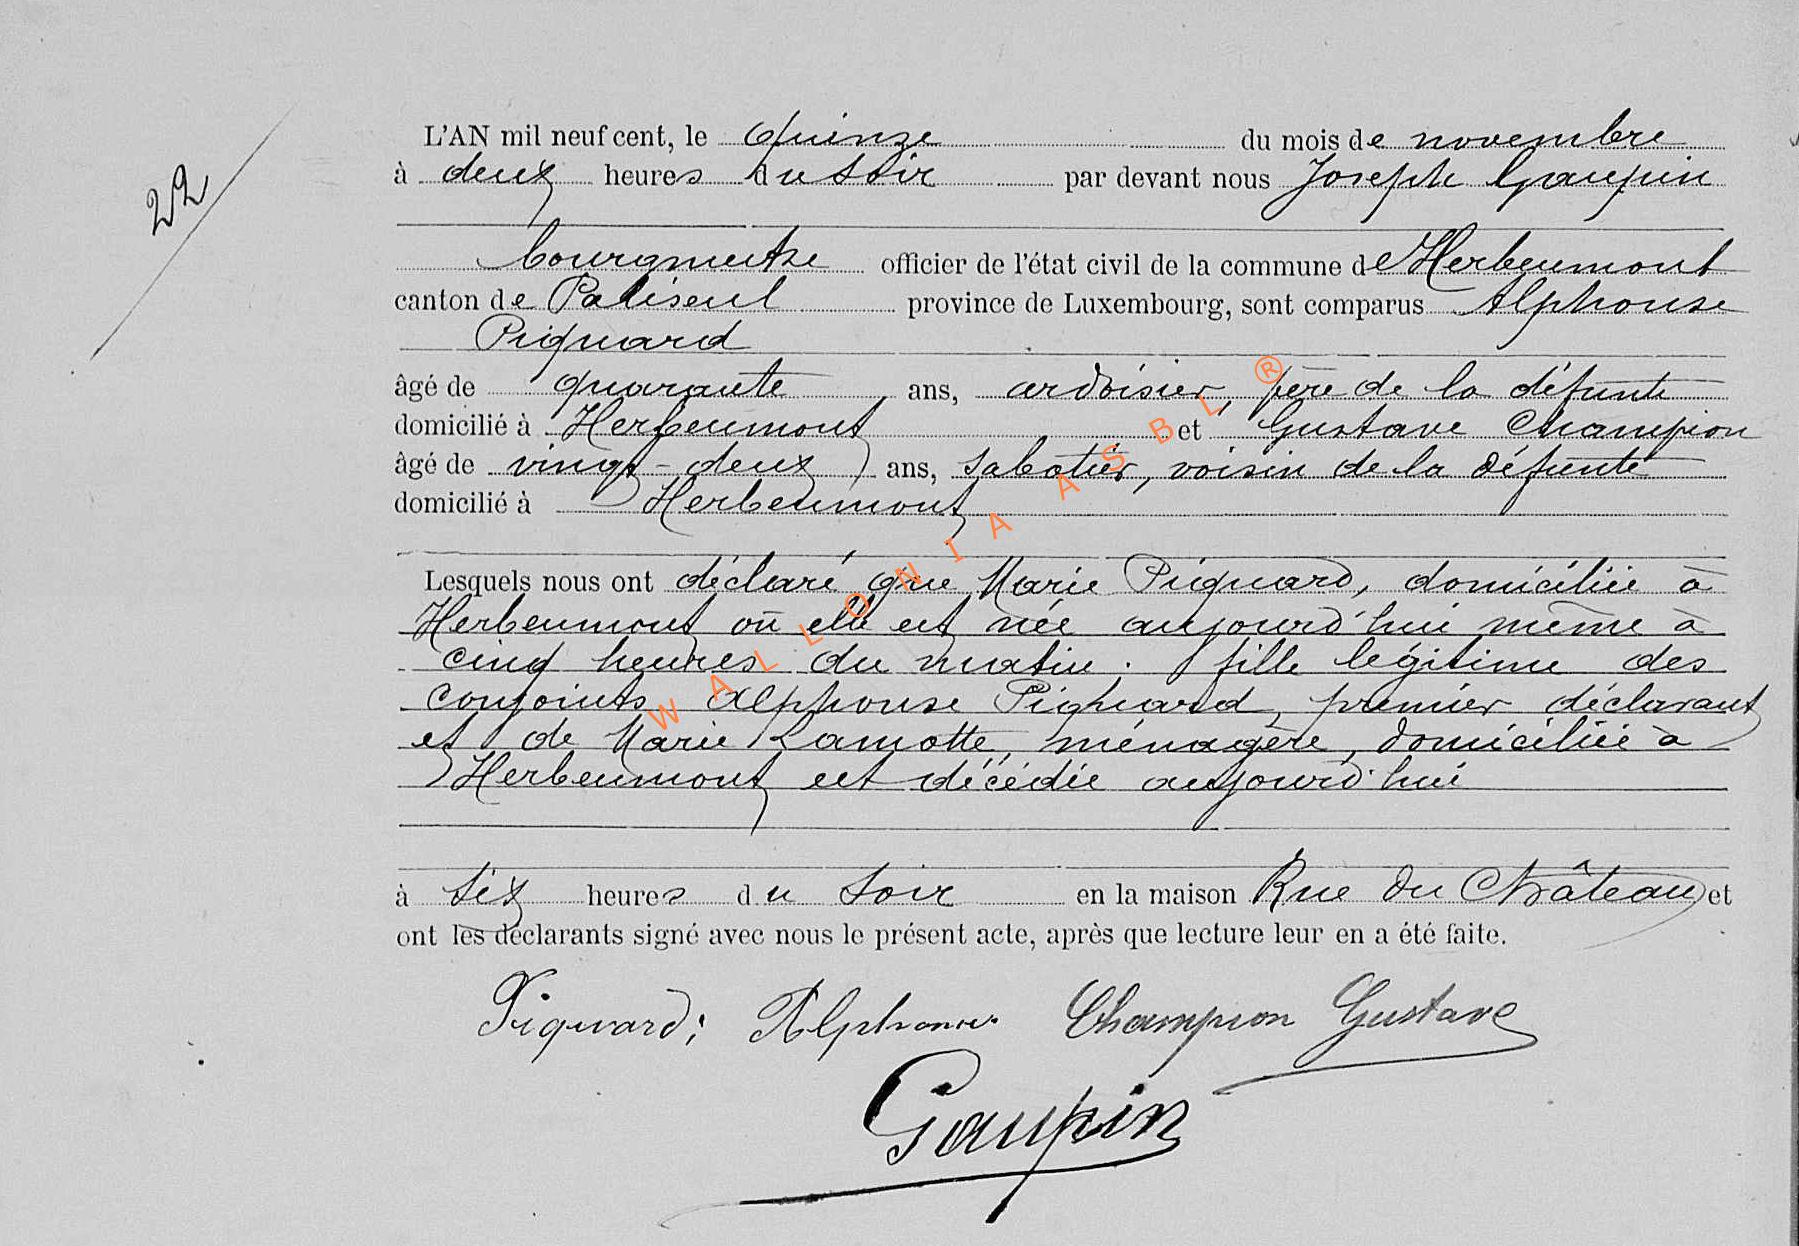 22
L'AN mil neuf cent, le quinze du mois de novembre
à deux heures du soir par devant nous Joseph Gaupin
bourgmestre officier de l'état civil de la commune de Herbeumont
canton de Paliseul province de Luxembourg, sont comparus Alphonse
Piquard
âgé de quarante ans, ardoisier, père de la défunte
domicilié à Herbeumont et Gustave Champion
âgé de vingt-deux ans, sabotier, voisin de la défunte
domicilié à Herbeumont
Lesquels nous ont déclaré que Marie Piquard, domiciliée à
Herbeumont où elle est née aujourd'hui même à
cinq heures du matin. fille légitime des
conjoints Alphonse Piquard, premier déclarant
et de Marie Lamotte, ménagère, domiciliée à
Herbeumont est décédée aujourd'hui
à six heures du soir en la maison Rue du Château et
ont les déclarants signé avec nous le présent acte, après que lecture leur en a été faite.
Piquard; Alphonse Champion Gustave
Gaupin
WALLONIA ASBL ®